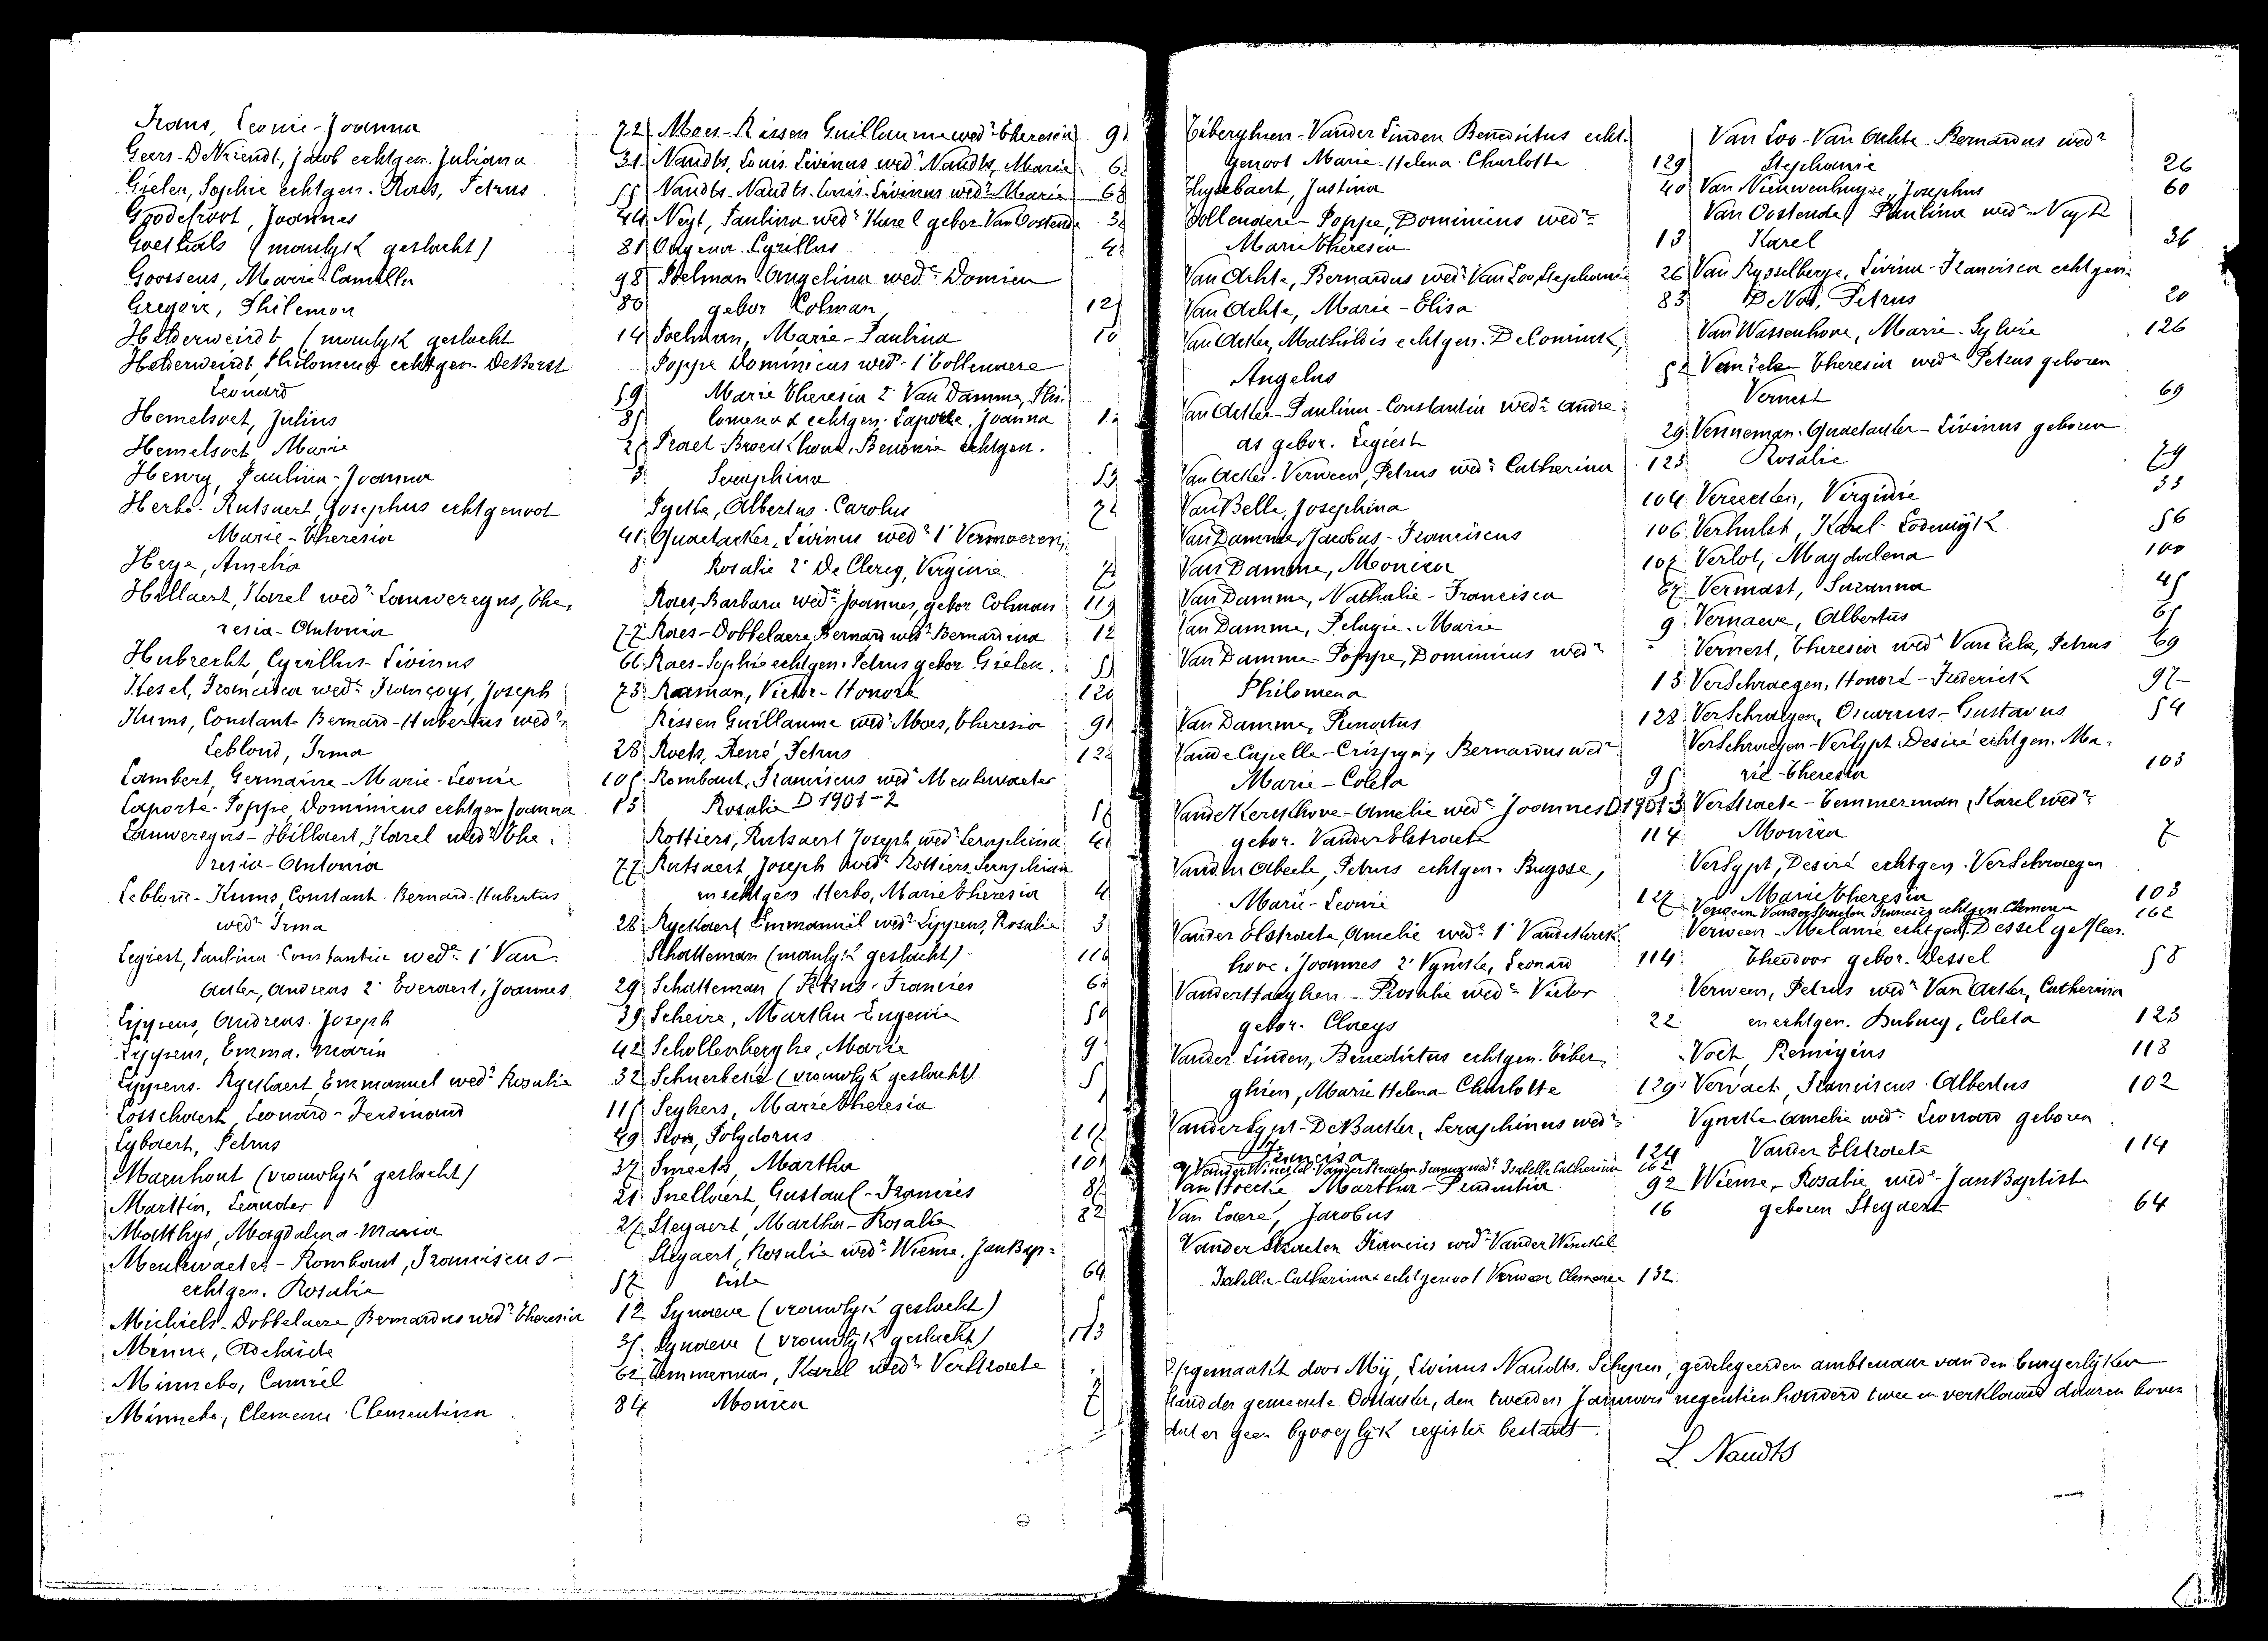 Frans, Leonie-Joanna 72
Geers-DeVriendt, Jacob echtgen. Juliana 31
Gielen, Sophie echtgen. Raes, Petrus 55
Goodefroot, Joannes 44
Goethals (manlyk geslacht) 81
Goossens, Marie-Camilla 98
Gregoir, Philemon 80
Helderweirdt (manlyk geslacht 14
Helderweirdt Philomena echtgen DeBorst
Leonard 59
Hemelsoet, Julius 85
Hemelsoet Marie
Henry, Paulina-Joanna
Herbo-Rutsaert, Josephus echtgenoot
Marie-Theresia 41
Heye, Amelia 8
Hillaert, Karel wedr Lauwereyns, The-
resia-Antonia 77
Hubrecht, Cyrillus-Livinus 66
Kesel, Francisca wede Françoys, Joseph 73
Kums, Constant-Bernard-Hubertus wedr
Leblond, Irma 28
Lambert, Germaine-Marie-Leonie 105
Laporte-Poppe, Dominicus echtgen Joanna 13
Lauwereyns-Hillaert, Karel wedr The-
resia-Antonia 77
Leblond-Kums Constant-Bernard-Hubertus
wedr Irma 28
Legiest, Paulina-Constantia wede 1° Van
Acker, Andreas 2° Everaert, Joannes 29
Lippens, Andreas-Joseph 39
Lippens, Emma, Maria 42
Lippens-Ryckaert Emmanuel wedr Rosalia 32
Losschaert, Leonard-Ferdinand 115
Lybaert, Petrus 49
Maenhout (vrouwlyk geslacht) 37
Martin, Leander 21
Matthys, Magdalena-Maria 27
Meulewaeter-Rombaut, Franciscus-
echtgen. Rosalie 57
Michiels-Dobbelaere, Bernardus wedr Theresia 12
Minne, Adelaide 35
Minnebo, Camiel 62
Minnebo, Clemence-Clementina 84
Moes-Rissen Guillaume wedr Theresia
Naudts, Louis-Livinus wedr Naudts, Marie
Naudts-Naudts-Louis-Livinus wedr Marie
Neyt, Paulina wede Karel gebor. Van Oostende
Ongena Cyrillus
Poelman Angelina wede Domien
gebor Colman
Poelman, Marie-Paulina
Poppe Dominicus wedr 1° Tollenaere
Marie Theresia 2° Van Damme, Phi-
lomena & echtgen. Laporte, Joanna
Praet-Broeckhove, Benonie echtgen.
Seraphina
Pycke, Albertus-Carolus
Quaetaeker, Livinus wedr 1° Vermoeren,
Rosalie 2° De Clercq, Virginie.
Raes-Barbara wede Joannes, gebor Colman 119
Raes-Dobbelaere, Bernard wedr Bernardina 12
Raes-Sophie echtgen. Petrus gebor Gielen.
Raman, Victor-Honoré 120
Rissen Guillaume wedr Moes, Theresia
Roels, René Petrus 122
Rombaut, Franciscus wedr Meulewaeter
Rosalie D 1901-2
Rottiers, Rutsaert Joseph wedr Seraphina
Rutsaert, Joseph wedr Rottiers Seraphina
en echtgen Herbo, Marie Theresia
Ryckaert Emmanuel wedr Lippens, Rosalia
Schatteman (manlyk geslacht) 116
Schatteman (Petrus-Francies
Scheire, Martha-Eugenie
Schollenberghe, Marie
Schuerbeke (vrouwlyk geslacht)
Seghers, Marie Theresia
Slos, Polydorus
Smeets, Martha
Snellaert, Gustaaf-Francies
Steyaert, Martha-Rosalie
Steyaert, Rosalie wede Wieme, JanBap-
tiste 64
Synaeve (vrouwlyk geslacht)
Synaeve (vrouwlyk geslacht) 113
Temmerman, Karel wedr Verstraete
Monica 7
Tiberghien-Vander Linden Benedictus echt-
genoot Marie-Helena-Charlotte 129
Huyzebaert, Justina 40
Tollenaere-Poppe, Dominicus wedr
Marie Theresia 13
Van Achte, Bernardus wedr Van Loo, Stephanie 26
Van Achte, Marie-Elisa 83
Van Acker, Mathildis echtgen. DeConinck,
Angelus 52
Van Acker-Paulina-Constantia wede Andre-
as gebor. Legiest 29
Van Acker-Verween, Petrus wedr Catherina 123
Van Belle, Josephina 104
Van Damme, Jacobus-Franciscus 106
Van Damme, Monica 107
Van Damme, Nathalie-Francisca 67
Van Damme, Pelagie-Marie 9
Van Damme-Poppe, Dominicus wedr
Philomena 13
Van Damme, Renatus 128
Vande Capelle-Crispyn, Bernardus wedr
Marie-Coleta 95
Vande Kerckhove-Amelie wede Joannes D 1901-3
gebor. Vander Elstraete 114
Vanden Abeele, Petrus echtgen. Buysse,
Marie-Leonie 127
Vander Elstraete, Amelie wede 1° Vandekerck-
hove, Joannes 2° Vyncke, Leonard 114
Vanderstaeghen-Rosalie wede Victor
gebor. Claeys 22
Vander Linden, Benedictus echtgen. Tiber-
ghien, Marie Helena-Charlotte 129
Vander Sypt-DeBacker, Seraphinus wedr
Francisca 124
Vander Winckel-Vander Straeten Francies wedr Isabella Catherina 162
Van Hoecke Martha-Prudentia 92
Van Loere, Jacobus 16
Vander Straeten Francies wedr Vander Winckel
Isabella-Catherina & echtgenoot Verween Clemence 132
Van Loo-Van Achte Bernardus wedr
Stephanie 26
Van Nieuwenhuyse, Josephus 60
Van Oostende, Paulina wede Neyt
Karel 36
Van Rysselberge, Livina-Francisca echtgen.
De Vos, Petrus 20
Van Wassenhove, Marie-Sylvie 126
Theresia wede Petrus geboren
Vernest 69
Venneman-Quaetaeker-Livinus geboren
Rosalie 79
Vereecken, Virginie 33
Verhulst, Karel-Lodewijk 56
Verlot, Magdalena 100
Vermast, Suzanna 45
Vernaeve, Albertus 65
Vernest, Theresia wede Petrus 69
VerSchraegen, Honoré-Frederick 97
VerSchraegen, Oscarius-Gustavus 54
VerSchraegen-VerSypt Desiré echtgen. Ma-
rie-Theresia 103
Verstraete-Temmerman, Karel wedr
Monica 7
VerSypt, Desiré echtgen. VerSchraegen
Marie Theresia 103
Verween Vander Straeten Francies echtgen. Clemence 162
Verween-Melanie echtgen. Dessel
Theodoor gebor. Dessel 58
Verween, Petrus wedr Van Acker, Catherina
en echtgen. Dubucy, Coleta 123
Voet, Remigius 118
Vervaet, Franciscus-Albertus 102
Vyncke Amelie wede Leonard geboren
Vander Elstraete 114
Wieme, Rosalie wede JanBaptist
geboren Steyaert 64
Opgemaakt door Mij, Livinus Naudts, Schepen, gedelegeerden ambtenaar van den burgerlijken
stand der gemeente Oostacker, den tweeden Januari negentien honderd twee en verklarend daaren boven
dat er geen byvoeglyk register bestaat.
L. Naudts